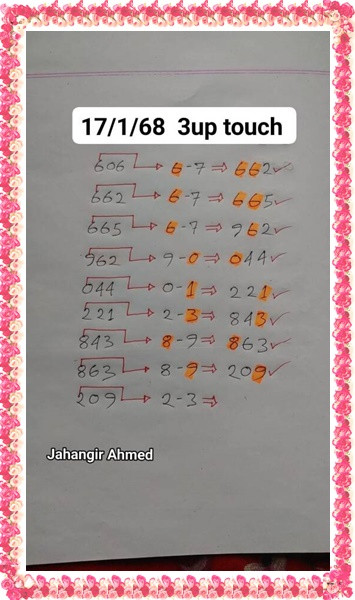 17/1/68 3up touch
606 → 6-7 ⇒ 662✓
662 → 6-7 ⇒ 665✓
665 → 6-7 ⇒ 962✓
962 → 9-0 ⇒ 044✓
044 → 0-1 ⇒ 221✓
221 → 2-3 ⇒ 843✓
843 → 8-9 ⇒ 863✓
863 → 8-9 ⇒ 209✓
209 → 2-3 ⇒
Jahangir Ahmed